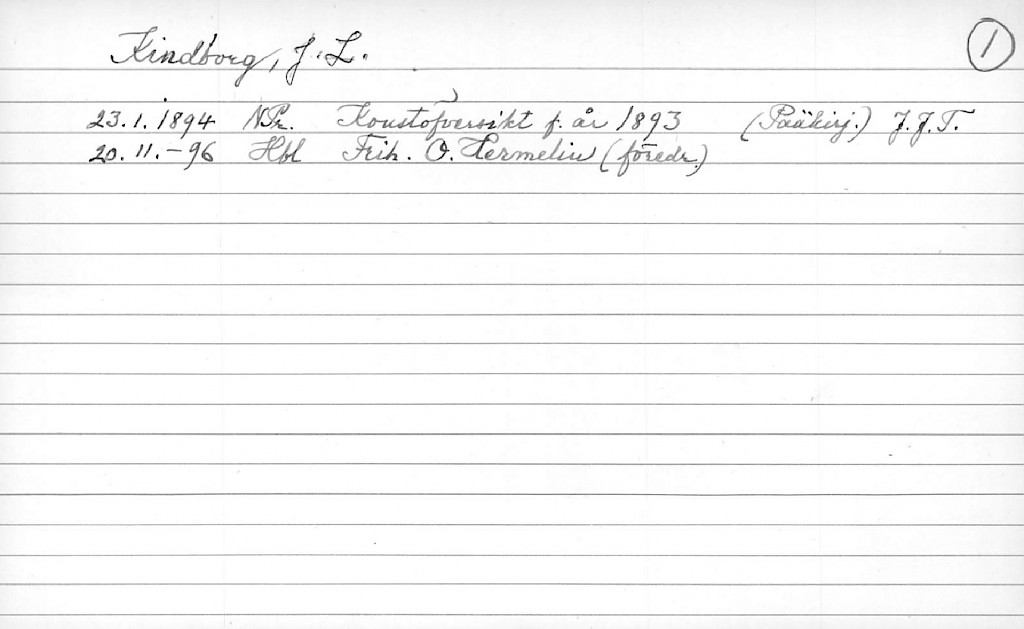 Kindborg, J. L. 1
23.1.1894 N.Pr. Konstöfversikt f. år 1893 (Pääkirj.) J.J.T.
20.11.-96 Hbl Frih. O. Hermelin (föredr.)